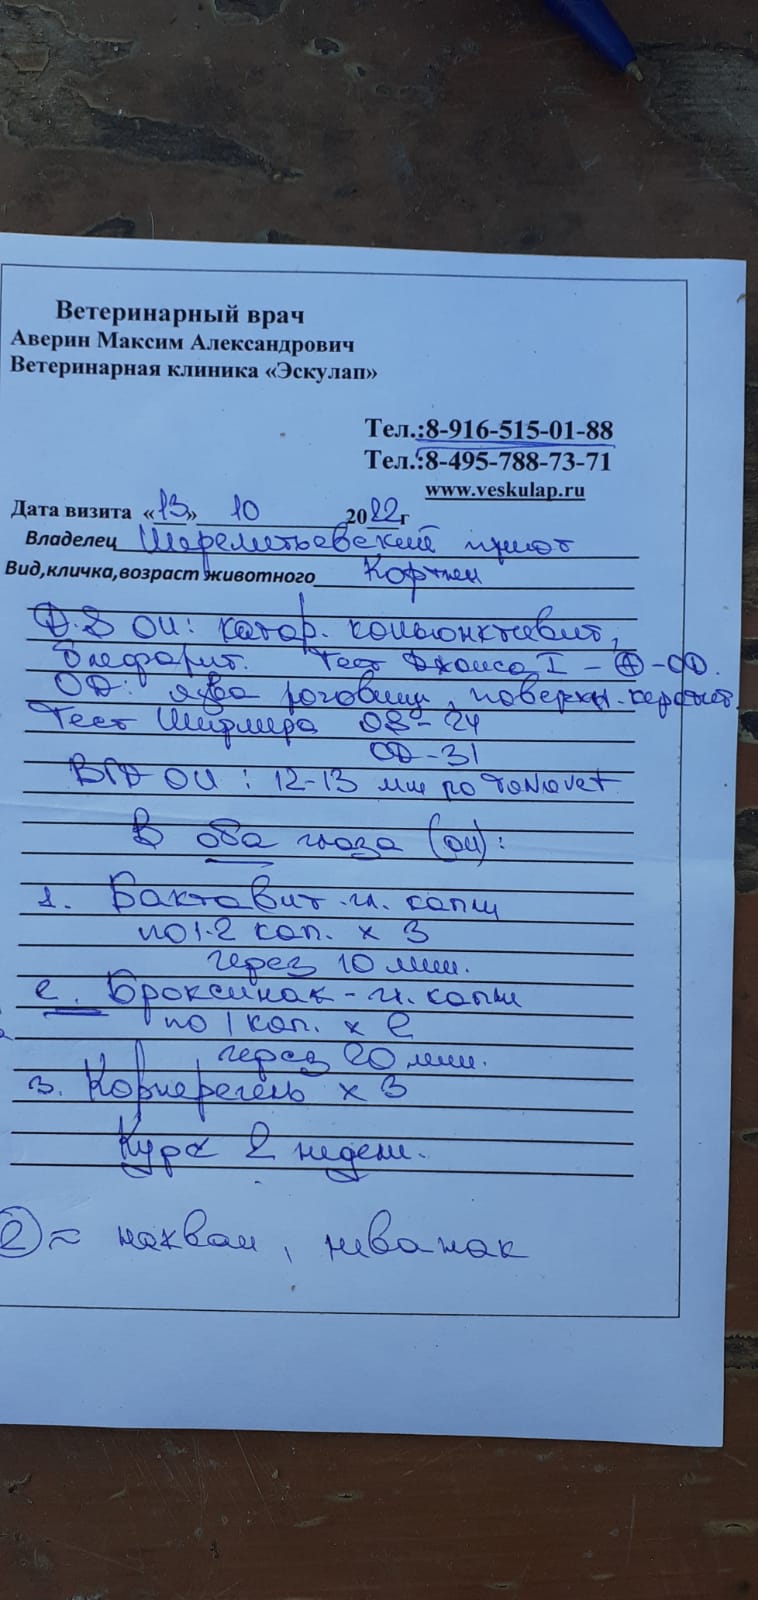 Ветеринарный врач
Аверин Максим Александрович
Ветеринарная клиника «Эскулап»
Тел.:8-916-515-01-88
Тел.:8-495-788-73-71
www.veskulap.ru
Дата визита «13» 10 2022г
Владелец Шереметьевский приют
Вид,кличка,возраст животного
D.S OU: катар. конъюнктивит,
блефарит. Тест Джонса I - - OD.
OD: язва роговицы, поверхн. кератит
Тест Ширмера OS - 24
OD - 31
ВГД OU: 12-13 мм по TonoVet
В оба глаза (OU):
1. Бактавит гл. капли
по 1-2 кап. x 3
через 10 мин.
2. Броксинак - гл. капли
по 1 кап. x 2
через 20 мин.
3. Корнерегель x 3
Курс 2 недели.
2 ≈ накван, неванак